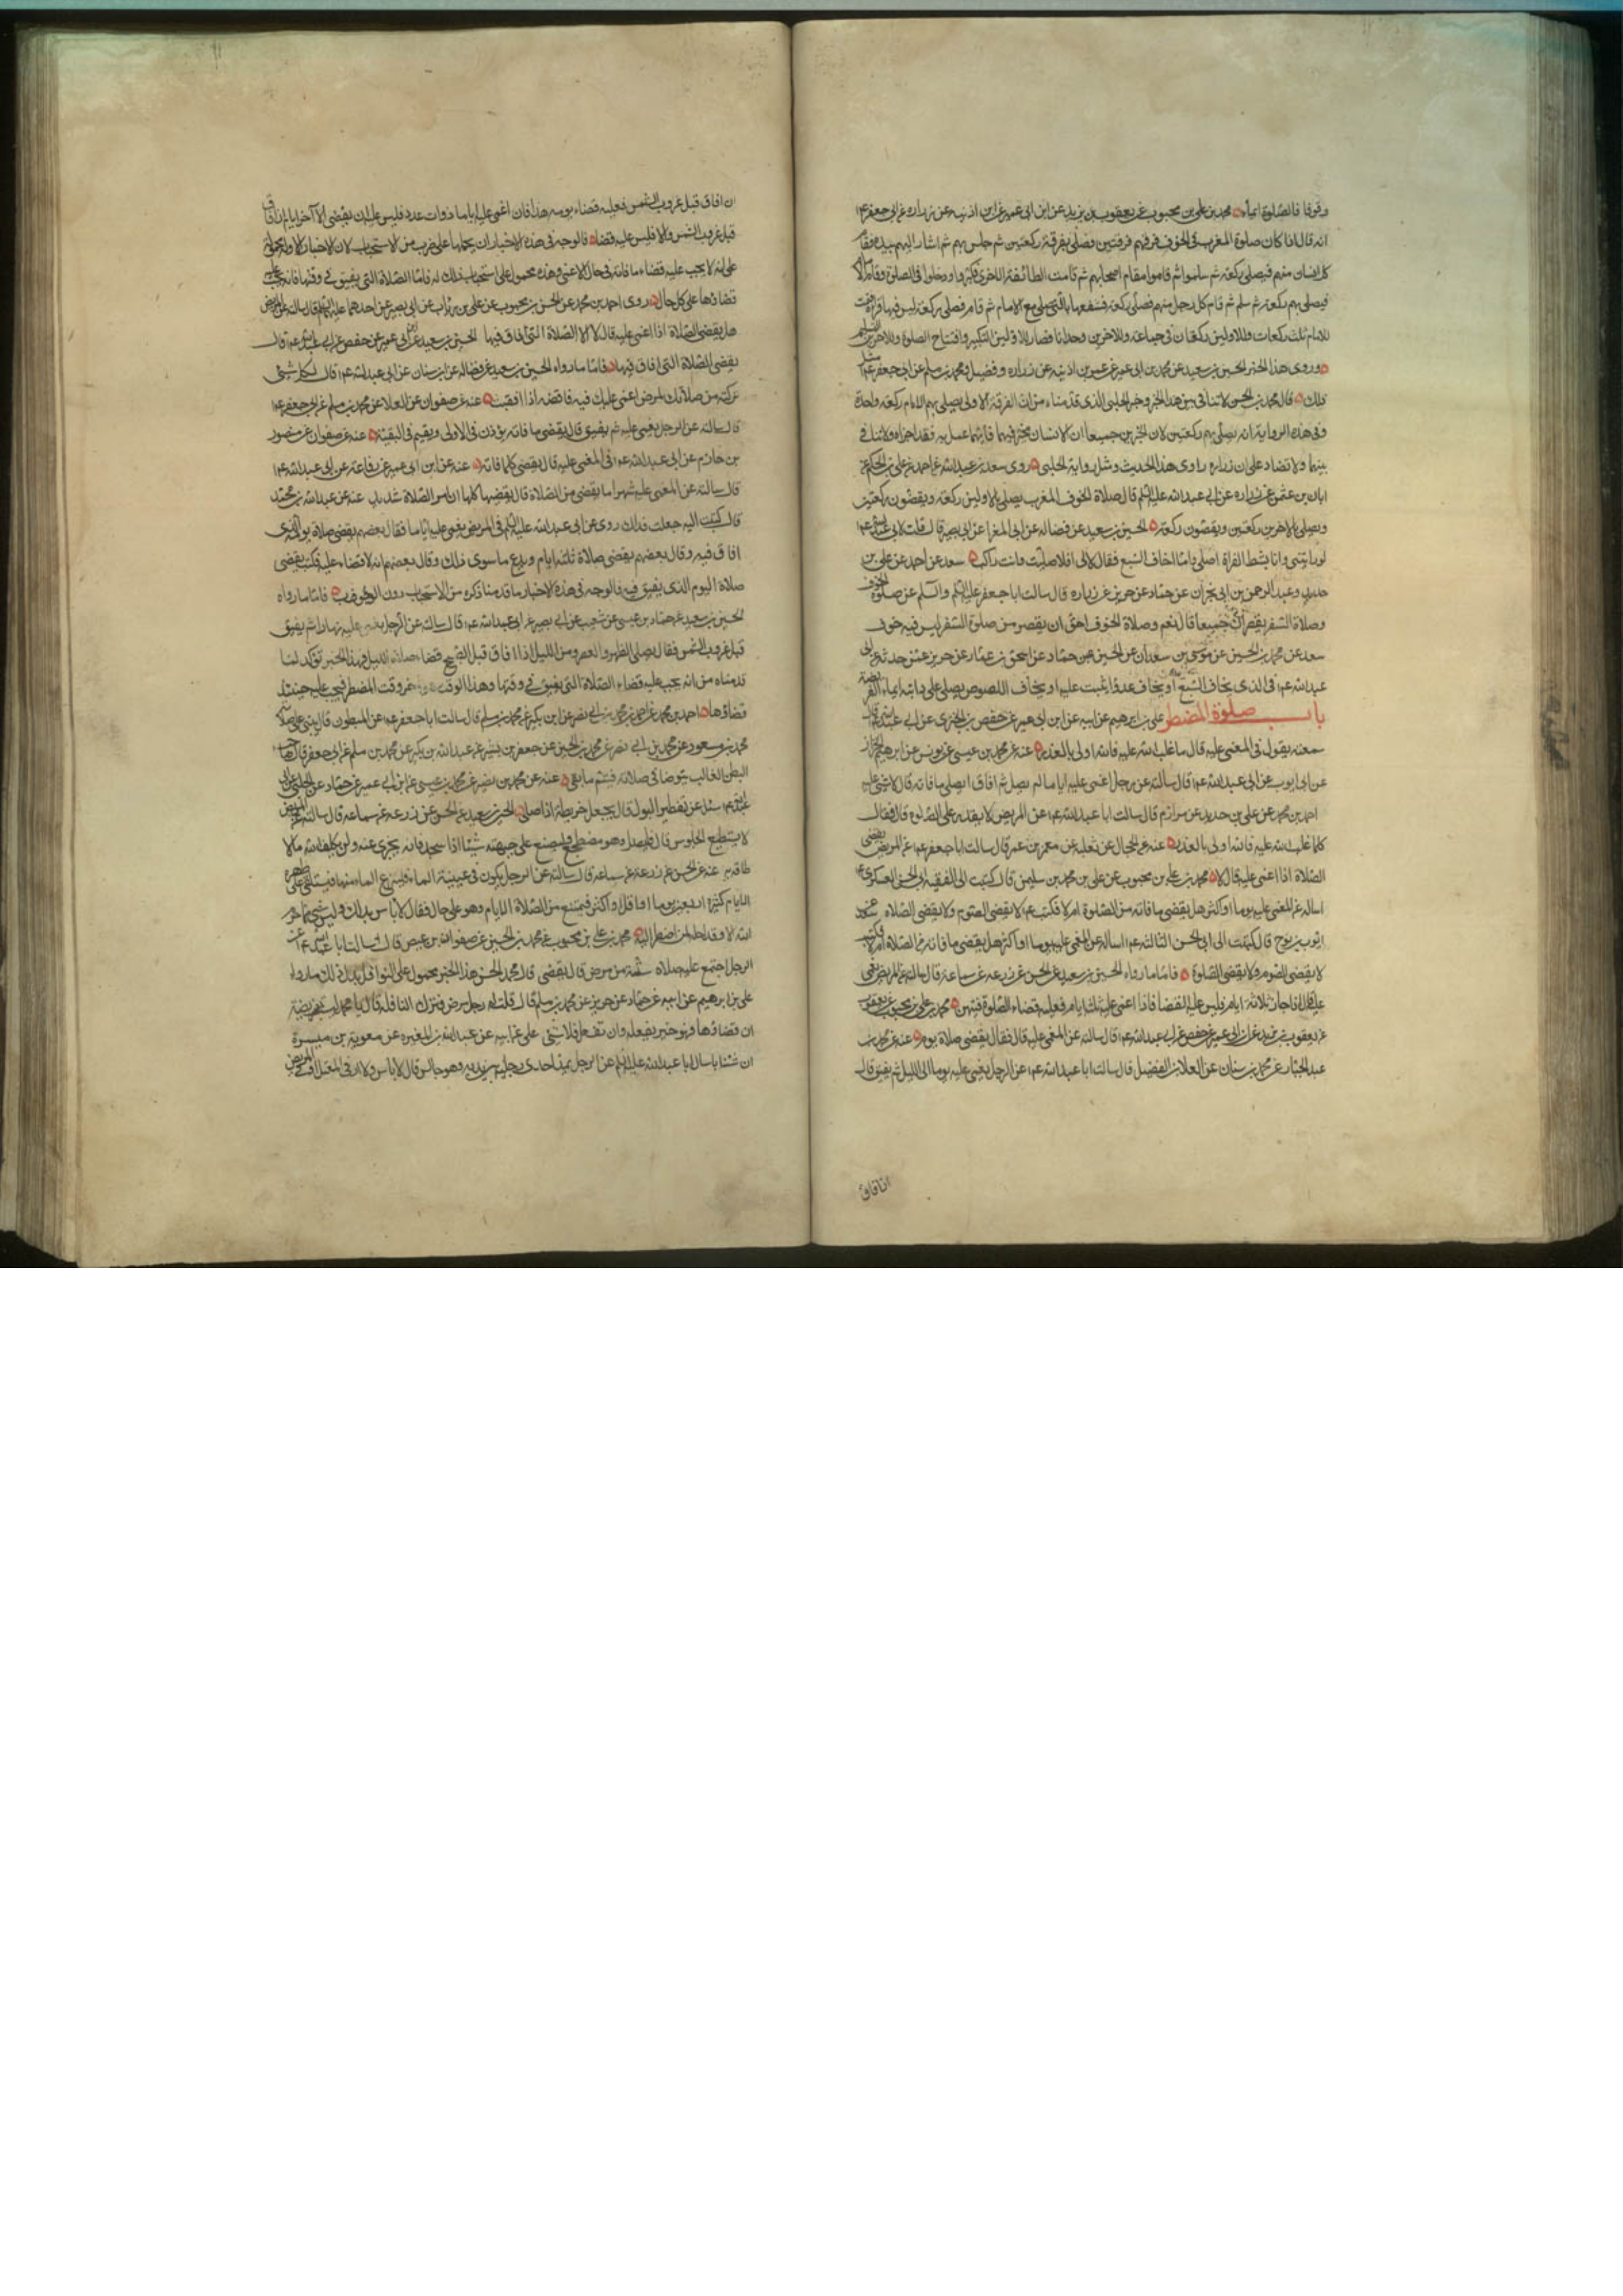 وقوفا فالصلوة ايماء محمد بن علي بن محبوب عن يعقوب بن يزيد عن ابن ابي عمير عن ابن اذينه عن زراره عن ابي جعفر ع
انه قال اذا كان صلوة المغرب في الخوف فرقهم فرقتين فصلى بفرقة ركعتين ثم جلس بهم ثم اشار اليهم بيده فقام
كل انسان منهم فيصلي ركعة ثم سلموا ثم قاموا مقام اصحابهم ثم قامت الطائفة الاخرى فكبروا ودخلوا في الصلوة وقام الامام
فيصلي بهم ركعة ثم سلم ثم قام كل رجل منهم فصلى ركعة فشفعها بالتي صلى مع الامام ثم قام فصلى ركعة ليس فيها قراة فتمت
للامام ثلث ركعات وللاولين ركعتان في جماعة وللاخرين وحدانا فصار للاولين التكبير وافتتاح الصلوة وللاخرين التسليم
وروى هذا الخبر الحسين بن سعيد عن محمد بن ابي عمير عن عمر بن اذينه عن زراره وفضيل ومحمد بن مسلم عن ابي جعفر ع مثل
ذلك قال محمد بن الحسن لا تنافي بين هذا الخبر وخبر الحلبي الذي قدمناه من ان الفرقة الاولى يصلي بهم الامام ركعة واحدة
وفي هذه الرواية انه يصلي بهم ركعتين لان الخبرين جميعا ان الانسان مخير فيهما فايهما عمل به فقد اجزاه ولا تنافي
بينهما ولا تضاد على ان زراره راوي هذا الحديث ومثل رواية الحلبي روى سعد بن عبد الله عن احمد عن علي بن الحكم عن
ابان بن عثمن عن زراره عن ابي عبد الله عليه السلم قال صلاة الخوف المغرب يصلي بالاولين ركعة ويقضون ركعتين
ويصلي بالاخرين ركعتين ويقضون ركعة الحسين بن سعيد عن فضاله عن ابي المغرا عن ابي بصير قال قلت لابي عبد الله ع
لو رايتني وانا بشط الفراة اصلي وانا اخاف السبع فقال لي افلا صليت وانت راكب سعد عن احمد عن علي بن
حديد وعبد الرحمن بن ابي نجران عن حماد عن حريز عن زراره قال سالت ابا جعفر عليه السلم عن صلوة الخوف
وصلاة السفر يقصران جميعا قال نعم وصلاة الخوف احق ان يقصر من صلوة السفر ليس فيه خوف
سعد عن محمد بن الحسين عن موسى بن سعدان عن الحسين عن حماد عن اسحق بن عمار عن حدثه عن ابي
عبد الله ع في الذي يخاف السبع او يخاف عدوا يثبت عليه او يخاف اللصوص يصلي على دابته ايماء الفريضة
باب صلوة المضطر علي بن ابرهيم عن ابيه عن ابن ابي عمير عن حفص بن البختري عن ابي عبد الله ع قال
سمعته يقول في المغمى عليه قال ما غلب الله عليه فالله اولى بالعذر عنه عن محمد بن عيسى عن يونس عن ابرهيم الخزاز
عن ابي ايوب عن ابي عبد الله ع قال سالته عن رجل اغمي عليه اياما لم يصل ثم افاق ايصلي ما فاته قال لا شيء عليه
احمد بن محمد عن علي بن حديد عن مرازم قال سالت ابا عبد الله ع عن المريض لا يقدر على الصلوة قال فقال
كلما غلب الله عليه فالله اولى بالعذر عنه عن الحجال عن ثعلبه عن معمر بن عمر قال سالت ابا جعفر ع عن المريض يقضي
الصلاة اذا اغمي عليه قال لا محمد بن علي بن محبوب عن علي بن محمد بن سليمن قال كتبت الى الفقيه ابي الحسن العسكري ع
اساله عن المغمى عليه يوما او اكثر هل يقضي ما فاته من الصلوة ام لا فكتب ع لا يقضي الصوم ولا يقضي الصلاه سعد عن
ايوب بن نوح قال كتبت الى ابي الحسن الثالث ع اساله عن المغمى عليه يوما او اكثر هل يقضي ما فاته من الصلاة ام لا فكتب
لا يقضي الصوم ولا يقضي الصلوة فاما ما رواه الحسين بن سعيد عن الحسن عن زرعه عن سماعة قال سالته عن المريض يغمى
عليه قال اذا جاز ثلاثة ايام فليس عليه القضا فاذا اغمي عليه ثلثة ايام فعليه قضاء الصلوة فيهن محمد بن علي بن محبوب عن يعقوب
عن يعقوب بن يزيد عن ابن ابي عمير عن حفص عن ابي عبد الله ع قال سالته عن المغمى عليه قال فقال يقضي صلاة يوم عنه عن محمد بن
عبد الجبار عن محمد بن سنان عن العلا بن الفضيل قال سالت ابا عبد الله ع عن الرجل يغمى عليه يوما الى الليل ثم يفيق قال
ان افاق
ان افاق قبل غروب الشمس فعليه قضاء يومه هذا فان اغمي عليه اياما ذوات عدد فليس عليه ان يقضي الا آخر ايامه ان افاق
قبل غروب الشمس والا فليس عليه قضاء فالوجه في هذه الاخبار ان يحملها على ضرب من الاستحباب لان الاخبار الاوله محمولة
على انه لا يجب عليه قضاء ما فاته في حال الاغمى وهذه محمول على استحباب ذلك له فاما الصلاة التي يفيق في وقتها فانه يجب عليه
قضاؤها على كل حال روى احمد بن محمد عن الحسن بن محبوب عن علي بن رئاب عن ابي بصير عن احدهما عليهما السلم قال سالته عن المريض
هل يقضي الصلاة اذا اغمي عليه قال لا الا الصلاة التي افاق فيها الحسين بن سعيد عن ابن ابي عمير عن حفص عن ابي عبد الله ع قال
يقضي الصلاة التي افاق فيها فاما ما رواه الحسين بن سعيد عن فضاله عن ابن سنان عن ابي عبد الله ع قال كل شئ
تركته من صلاتك لمرض اغمي عليك فيه فاقضه اذا افقت عنه عن صفوان عن العلا عن محمد بن مسلم عن ابي جعفر ع
قال سالته عن الرجل يغمى عليه ثم يفيق قال يقضي ما فاته يؤذن في الاولى ويقيم في البقية عنه عن صفوان عن منصور
بن حازم عن ابي عبد الله ع في المغمى عليه قال يقضي كلما فاته عنه عن ابن ابي عمير عن رفاعة عن ابي عبد الله ع
قال سالته عن المغمى عليه شهرا ما يقضي من الصلاة قال يقضيها كلها ان امر الصلاة شديد عنه عن عبد الله بن محمد
قال كتبت اليه جعلت فداك روى عن ابي عبد الله عليه السلم في المريض يغمى عليه اياما فقال بعضهم يقضي صلاة يومه الذي
افاق فيه وقال بعضهم يقضي صلاة ثلثة ايام ويدع ما سوى ذلك وقال بعضهم انه لا قضاء عليه فكتب يقضي
صلاة اليوم الذي يفيق فيه فالوجه في هذه الاخبار ما قدمنا ذكره من الاستحباب دون الوجوب فاما ما رواه
الحسين بن سعيد عن حماد بن عيسى عن شعيب عن ابي بصير عن ابي عبد الله ع قال سالته عن الرجل يغمى عليه نهارا ثم يفيق
قبل غروب الشمس فقال يصلي الظهر والعصر ومن الليل اذا افاق قبل الصبح قضاء صلاة الليل فهذا الخبر تؤكد لما
قدمناه من انه يجب عليه قضاء الصلاة التي يفيق في وقتها وهذا الوقت هو اخر وقت المضطر فيجب عليه حينئذ
قضاؤها احمد بن محمد عن احمد بن محمد بن ابي نصر عن ابن بكير عن محمد بن مسلم قال سالت ابا جعفر ع عن المبطون قال يبني على صلاته
محمد بن مسعود عن محمد بن نصير عن محمد بن الحسين عن جعفر بن بشير عن عبد الله بن بكير عن محمد بن مسلم عن ابي جعفر قال صاحب
البطن الغالب يتوضا في صلاته فيتم ما بقي عنه عن محمد بن نصير عن محمد بن عيسى عن ابن ابي عمير عن حماد عن الحلبي عن ابي
عبد الله ع سئل عن تقطير البول قال يجعل خريطة اذا صلى الحسين بن سعيد عن الحسن عن زرعه عن سماعه قال سالته عن المريض
لا يستطيع الجلوس قال فليصل وهو مضطجع وليضع على جبهته شيئا اذا سجد فانه يجزي عنه ولن يكلف الله ما لا
طاقة به عنه عن الحسن عن زرعه عن سماعه قال سالته عن الرجل يكون في عينيه الماء فينتزع الماء منها فيستلقي على ظهره
الايام كثيرة اربعين يوما او اقل او اكثر فيمتنع من الصلاة الايام وهو على حال فقال لا باس بذلك وليس شئ مما حرم
الله الا وقد احله لمن اضطر اليه محمد بن علي بن محبوب عن محمد بن الحسين عن صفوان عن عيص قال سالت ابا عبد الله ع عن
الرجل اجتمع عليه صلاة سنة من مرض قال لا يقضي قال محمد بن الحسن هذا الخبر محمول على النوافل يدل على ذلك ما رواه
علي بن ابرهيم عن ابيه عن حماد عن حريز عن محمد بن مسلم قال قلت له رجل مرض فترك النافلة قال يا محمد ليست بفريضة
ان قضاها فهو خير يفعله وان لم يفعل فلا شئ علي عن ابيه عن عبد الله بن المغيره عن معوية بن ميسرة
ان سنانا سال ابا عبد الله عليه السلم عن الرجل يمد احدى رجليه بين يديه وهو جالس قال لا باس ولا اراه الا قال في المعتل او المريض